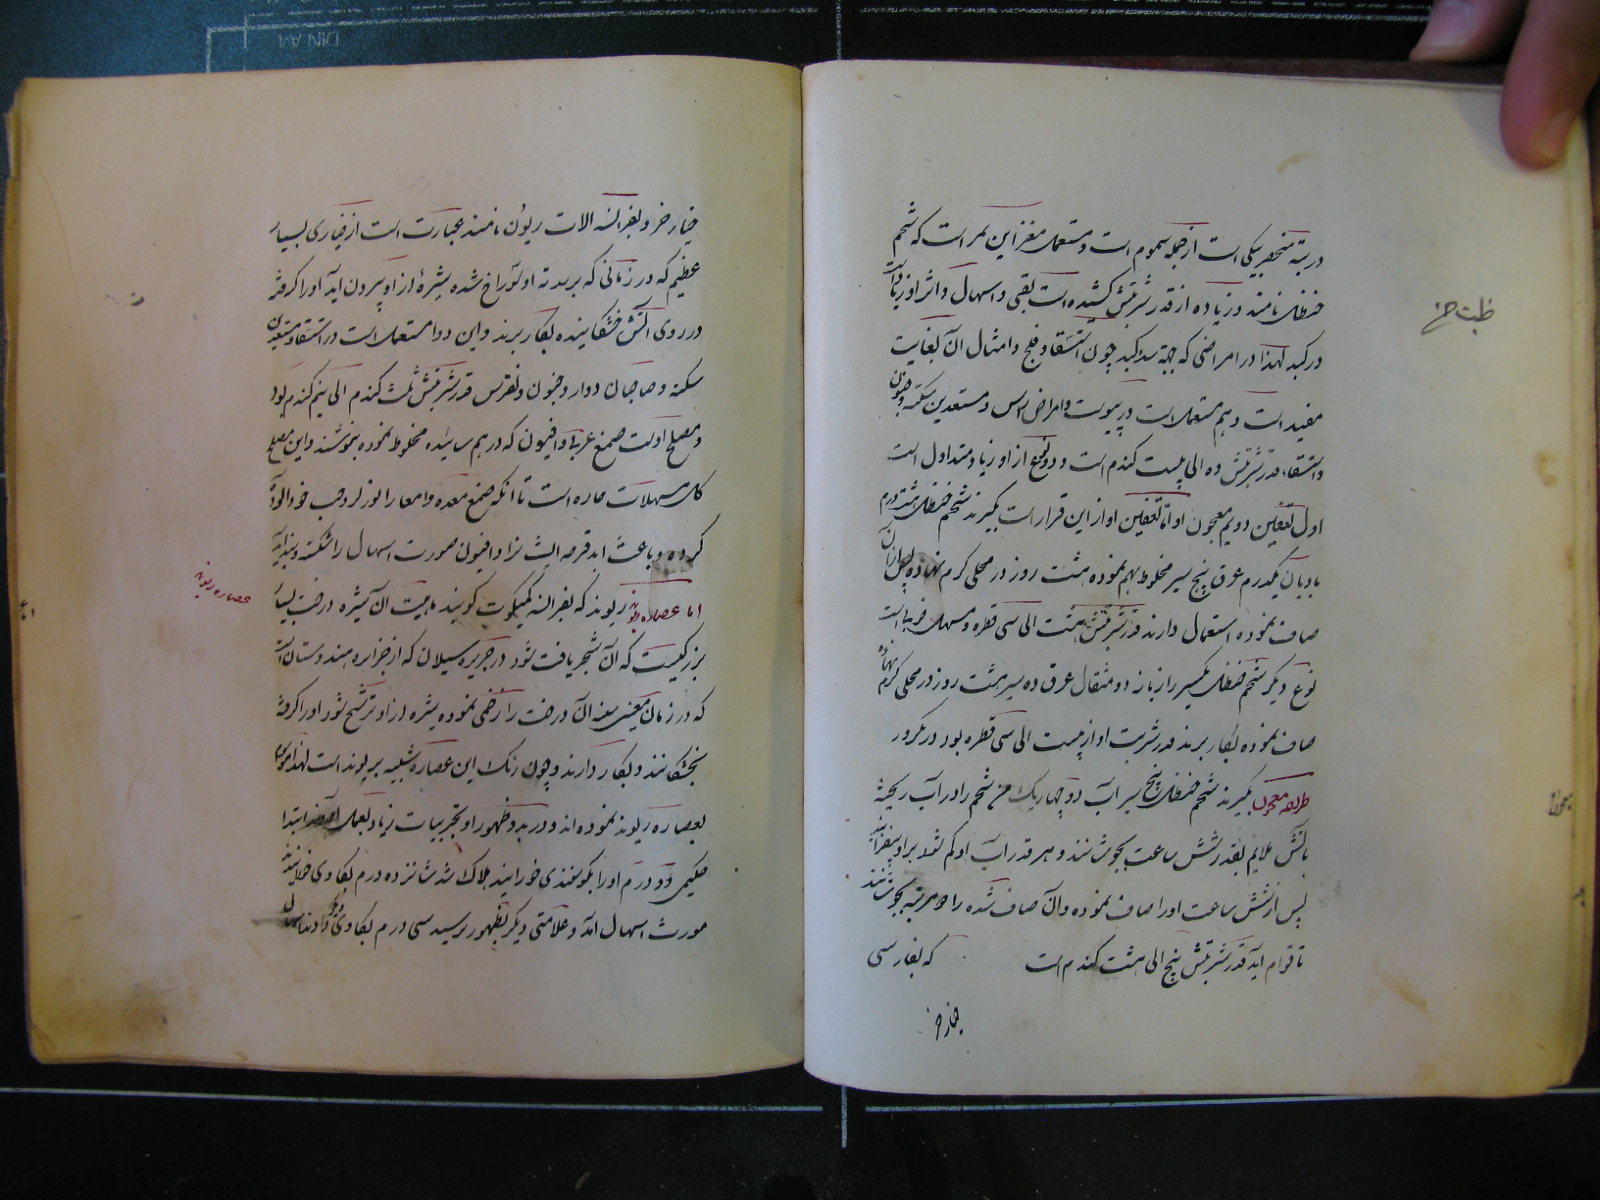 در رتبه منحصر بیکی است از جمله سموم است و مستعمل مغز این ثمر است که شحم
حنظل نامند و زیاده از قدر شربتش کشیده است بقی و اسهال و اثر او زیاد است
در کبد لهذا در امراضی که جهة سده کبد چون استسقا و فلج و امثال آن بغایت
مفید است و هم مستعمل است در یبوست و امراض راس و مستعدین سکته و جنون
و استسقا، قدر شربتش ده الی بیست کندم است و دو نوع از او زیاد متداول است
اول تعفین دویم معجون او اما تعفین او از این قرار است بکیرند شحم حنظل هشت درم
بادیان یکدرم عرق پنج سیر مخلوط بهم نموده هشت روز در محلی کرم نهاده پس از آن
صاف نموده استعمال دارند قدر شربتش هشت الی سی قطره و مسهل قوی است
نوع دیکر شحم حنظل یکسیر رازیانه دو مثقال عرق ده سیر هشت روز در محلی کرم نهاده
صاف نموده بکار برند قدر شربت او از بیست الی سی قطره بود در مرور
طریقه معجون بکیرند شحم حنظل پنج سیر آب دو چهاریک من شحم را در آب ریخته
باتش ملایم بقدر شش ساعت بجوشانند و هر قدر آب او کم شود بر او بیفزایند
پس از شش ساعت او را صاف نموده و آن صاف شده را دو مرتبه بجوشانند
تا قوام آید قدر شربتش پنج الی هشت کندم است که بفارسی
خیار خر
خیار خر و بفرانسه الات ریون نامند عبارت است از خیاری بسیار
عظیم که در زمانی که برسد ته او سوراخ شده شیرهٔ از او بیرون اید آنرا کرفته
در روی آتش خشکانیده بکار برند و این دوا مستعمل است در استسقا و مستعدین
سکته و صاحبان دوار و جنون و نقرس قدر شربتش ثلث کندم الی نیم کندم بود
و مصلح اوست صمغ عربی و افیون که در هم سائیده مخلوط نموده بنوشند و این مصلح
کل مسهلات حاره است تا آنکه صمغ معده و امعا را لوز
کرده و باعث اید قرحه ایشانرا و افیون صورت اسهال را شکسته
اما عصاره ریوند که بفرانسه کمیکوت کویند ماهیت آن شیره درخت بسیار
بزرکیست که آن شجر یافت شود در جزیره سیلان که از جزایر هندوستان است
که در زمان معینی سنه آن درخت را زخمی نموده شیره از او ترشح شود او را کرفته
بخشکانند و بکار دارند و چون رنک این عصاره شبیه بریوند است لهذا موسوم
بعصاره ریوند نموده اند و در بدو ظهور او تجربیات زیاد بعمل آوردند ابتدا
حکیمی دو درم او را بکوسفندی خورانید هلاک شد شانزده درم بکاوی خورانیدند
مورث اسهال آمد و علامتی دیکر بظهور نرسید سی درم بکاوی دیکر دادند اسهال
عصاره ریوند